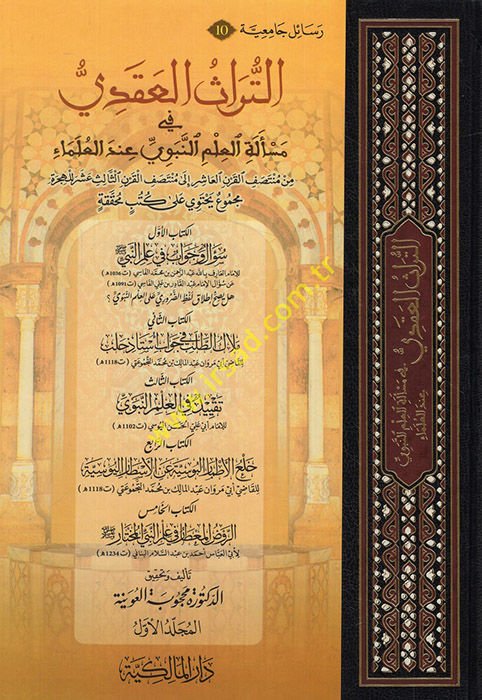 رسائل جامعية 10
التُّرَاثُ العَقَدِيُّ
فِي
مَسْأَلَةِ العِلْمِ النَّبَوِيِّ عِنْدَ العُلَمَاءِ
مِنْ مُنْتَصَفِ القَرْنِ العَاشِرِ إِلَى مُنْتَصَفِ القَرْنِ الثَّالِثَ عَشَرَ لِلْهِجْرَةِ
مَجْمُوعٌ يَحْتَوِي عَلَى كُتُبٍ مُحَقَّقَةٍ
الكتاب الأول
سُؤَالٌ وَجَوَابٌ فِي عِلْمِ النَّبِيِّ ﷺ
للإمام العارف بالله عبد الرحمن بن محمد الفاسي (ت1036هـ)
عن سؤال الإمام عبد القادر بن علي الفاسي (ت1091هـ)
هل يصح إطلاق لفظ الضروري على العلم النبوي؟
الكتاب الثاني
مَلَاكُ الطَّلَبِ فِي جَوَابِ أُسْتَاذِ حَلَب
للقاضي أبي مروان عبد الملك بن محمد التجموعتي (ت1118هـ)
الكتاب الثالث
تَقْيِيدٌ فِي العِلْمِ النَّبَوِيِّ
للإمام أبي علي الحسن اليوسي (ت1102هـ)
الكتاب الرابع
خَلْعُ الأَطْمَارِ البُوسِيَّةِ عَنِ الأَسْطَارِ اليُوسِيَّةِ
للقاضي أبي مروان عبد الملك بن محمد التجموعتي (ت1118هـ)
الكتاب الخامس
الرَّوْضُ المِعْطَارُ فِي عِلْمِ النَّبِيِّ المُخْتَارِ ﷺ
لأبي العباس أحمد بن عبد السلام البناني (ت1234هـ)
تأليف وتحقيق
الدكتورة محجوبة العوينة
المجلد الأول
دار المالكية
التراث العقدي
في مسألة العلم النبوي
عند العلماء